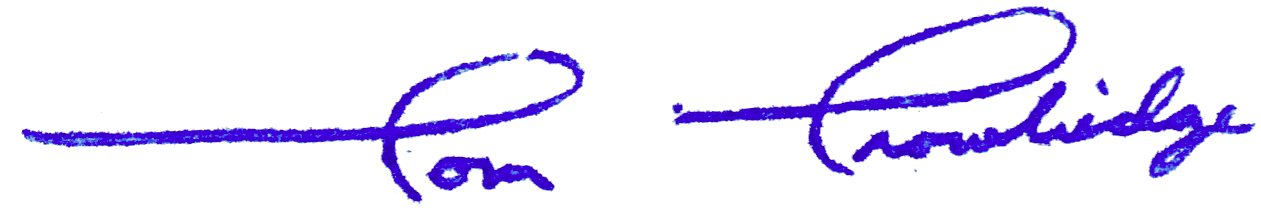 Tom Trowbridge